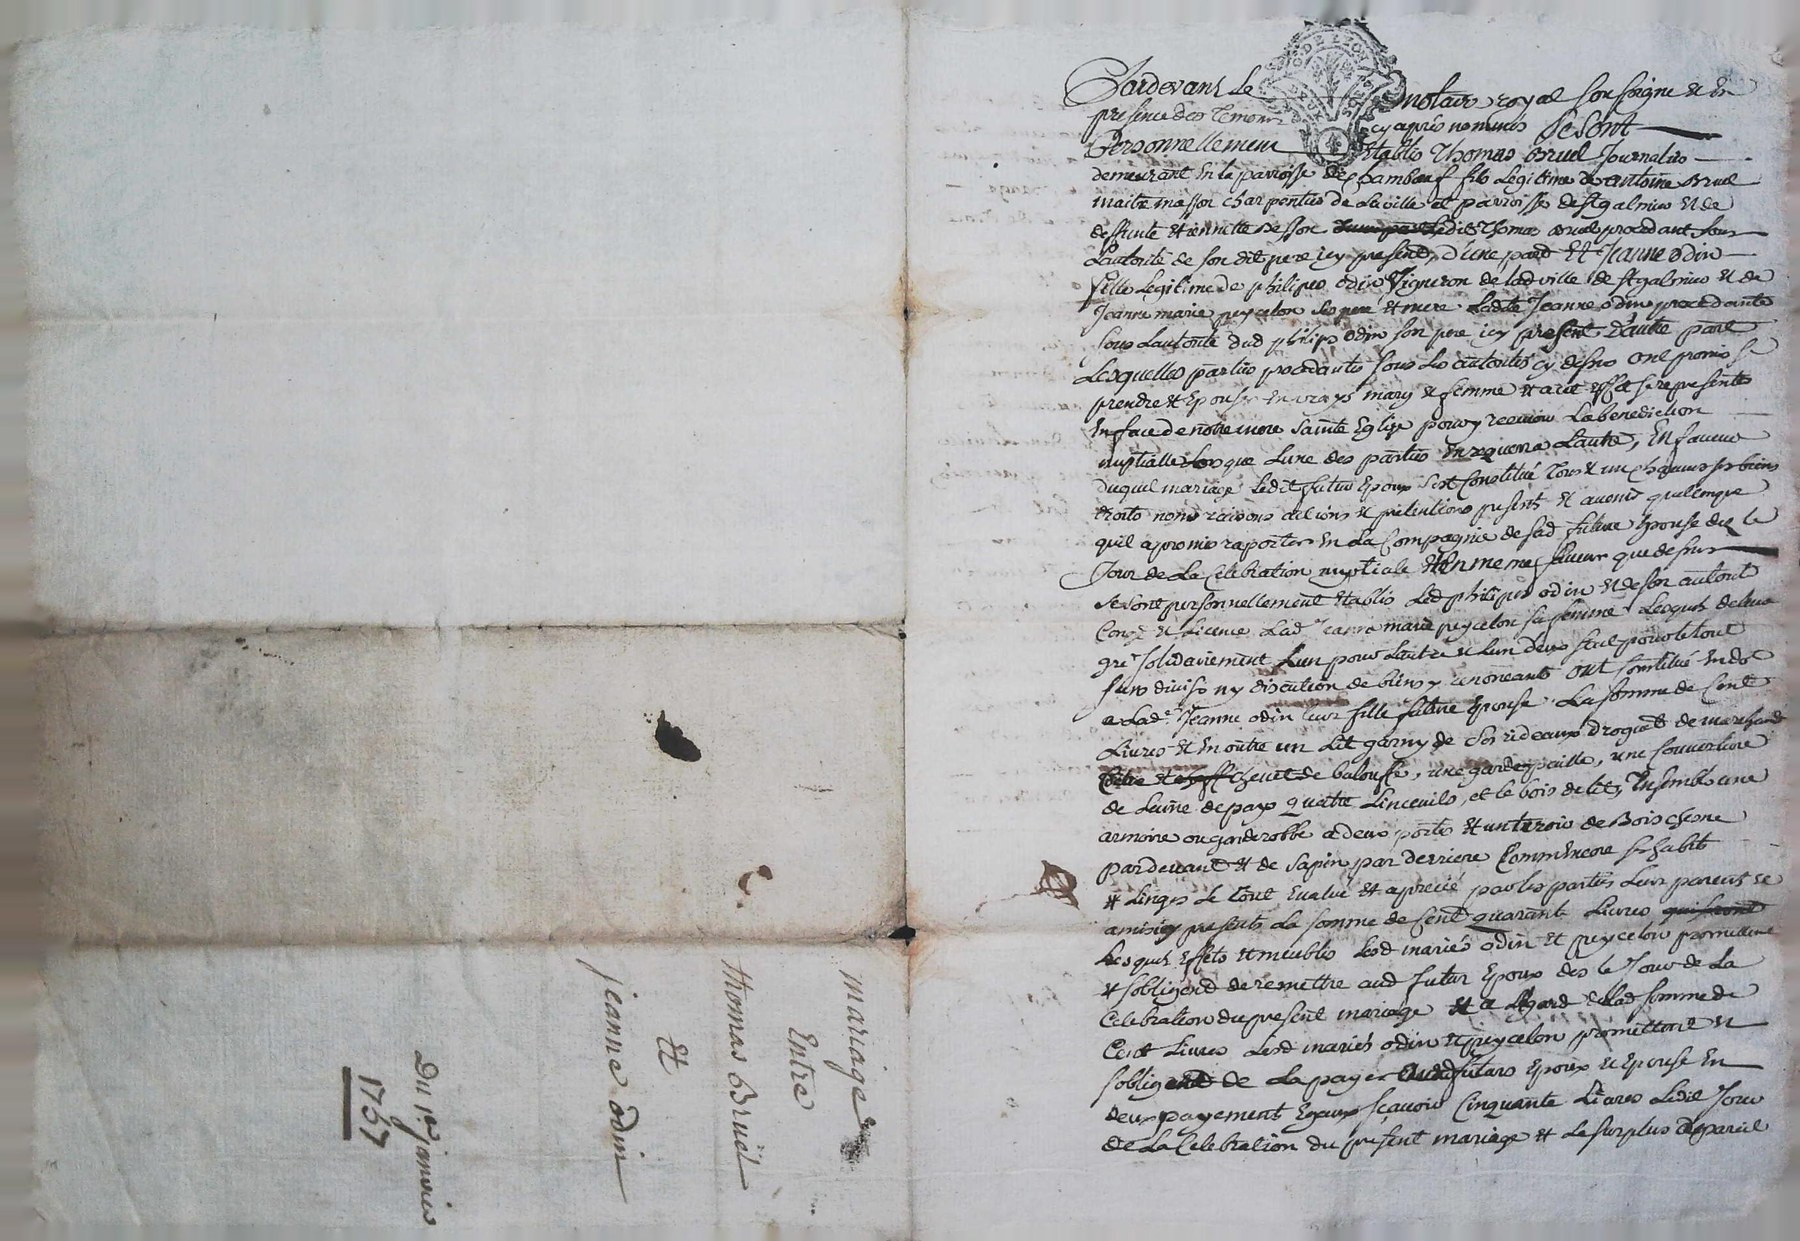 mariage
Entre
thomas Bruël
Et
jeanne odin
Du 1er janvier
1757
DE LYON
Pardevant Le notaire royal soussigné et En
presence des Temoins cy apres nommés se sont
Personnellement Etablis Thomas Bruel Journalier
demeurant En la parroisse de chambeuf fils Legitime de antoine Bruel
maitre masson charpentier de La ville et parroisse de st galmier et de
deffunte Etiennette Besson Ledit Thomas Bruel procedant sous
L'autorité de son dit pere icy present, d'une part Et Jeanne odin
fille Legitime de philipes odin Vigneron de lad ville de st galmier et de
Jeanne marie peycelon ses pere et mere Ladte Jeanne odin procedante
sous L'autorité dud philipes odin son pere icy present D'autre part
Lesquelles parties procedantes sous Les autorités cy dessus ont promis se
prendre et Epouser En vrays mary et femme et a cet Effet se representer
En face de notre mere sainte Eglise pour y recevoir La benediction
nuptialle Lorsque L'une des parties En requerra L'autre, En faveur
duquel mariage Ledit futur Epoux s'est Constitué Tous et un chacuns ses biens
droits noms raisons actions et pretentions presents et avenir quelconque
qu'il a promis raporter En La Compagnie de sad future Epouse des le
Jour de La Celebration nuptiale Et En meme faveur que dessus
se sont personnellement Etablis Led philipes odin et de son autorité
Congé et Licence Lad Jeanne marie peycelon sa femme Lesquels de leur
gré solidairement L'un pour L'autre et L'un deux seul pour le tout
sans division ny discution de biens y renonceant ont Constitué En dot
a Lade Jeanne odin leur fille future Epouse La somme de Cent
Livres et En outre un Lit garny de ses rideaux drogüet de marchand
chevet de balouffe, une gardepaille, une Couverture
de Laine de pays quatre Linceuils, et le bois de lit, Ensemble une
armoire ou garderobbe a deux portes et un tiroir de Bois chesne
par devant et de sapin par derriere Comm'Encore ses habits
et Linges Le Tout Evalué et aprecié par les parties Leur parents et
amis icy presents La somme de Cent quarante Livres
Lesquels Effets et meubles Lesd mariés odin et peycelon promettent
et s'obligent de remettre aud futur Epoux des le Jour de La
Celebration du present mariage et a L'Egard de lad somme de
Cent Livres Lesd mariés odin et peycelon promettent et
s'obligent de La payer futurs Epoux et Epouse En
deux payement Egaux sçavoir Cinquante Livres Ledit Jour
de La Celebration du present mariage et Le surplus Apareil